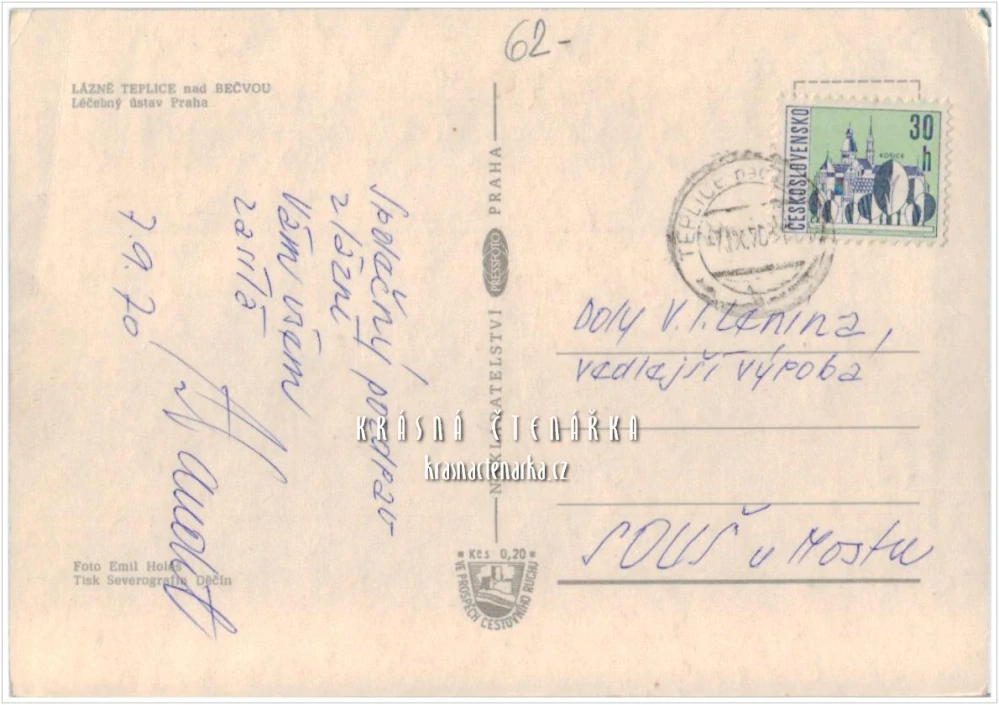 62-
LÁZNĚ TEPLICE nad BEČVOU
Léčebný ústav Praha
Srdečný pozdrav
z lázní
Vám všem
zasílá
7.9.70
Foto Emil Holeš
Tisk Severografia Děčín
NAKLADATELSTVÍ PRESSFOTO PRAHA
Kčs 0,20
VE PROSPĚCH CESTOVNÍHO RUCHU
ČESKOSLOVENSKO
30 h
KOŠICE
TEPLICE nad
Doly V. I. Lenina,
vedlejší výroba
SOUŠ u Mostu
KRÁSNÁ ČTENÁŘKA
krasnactenarka.cz